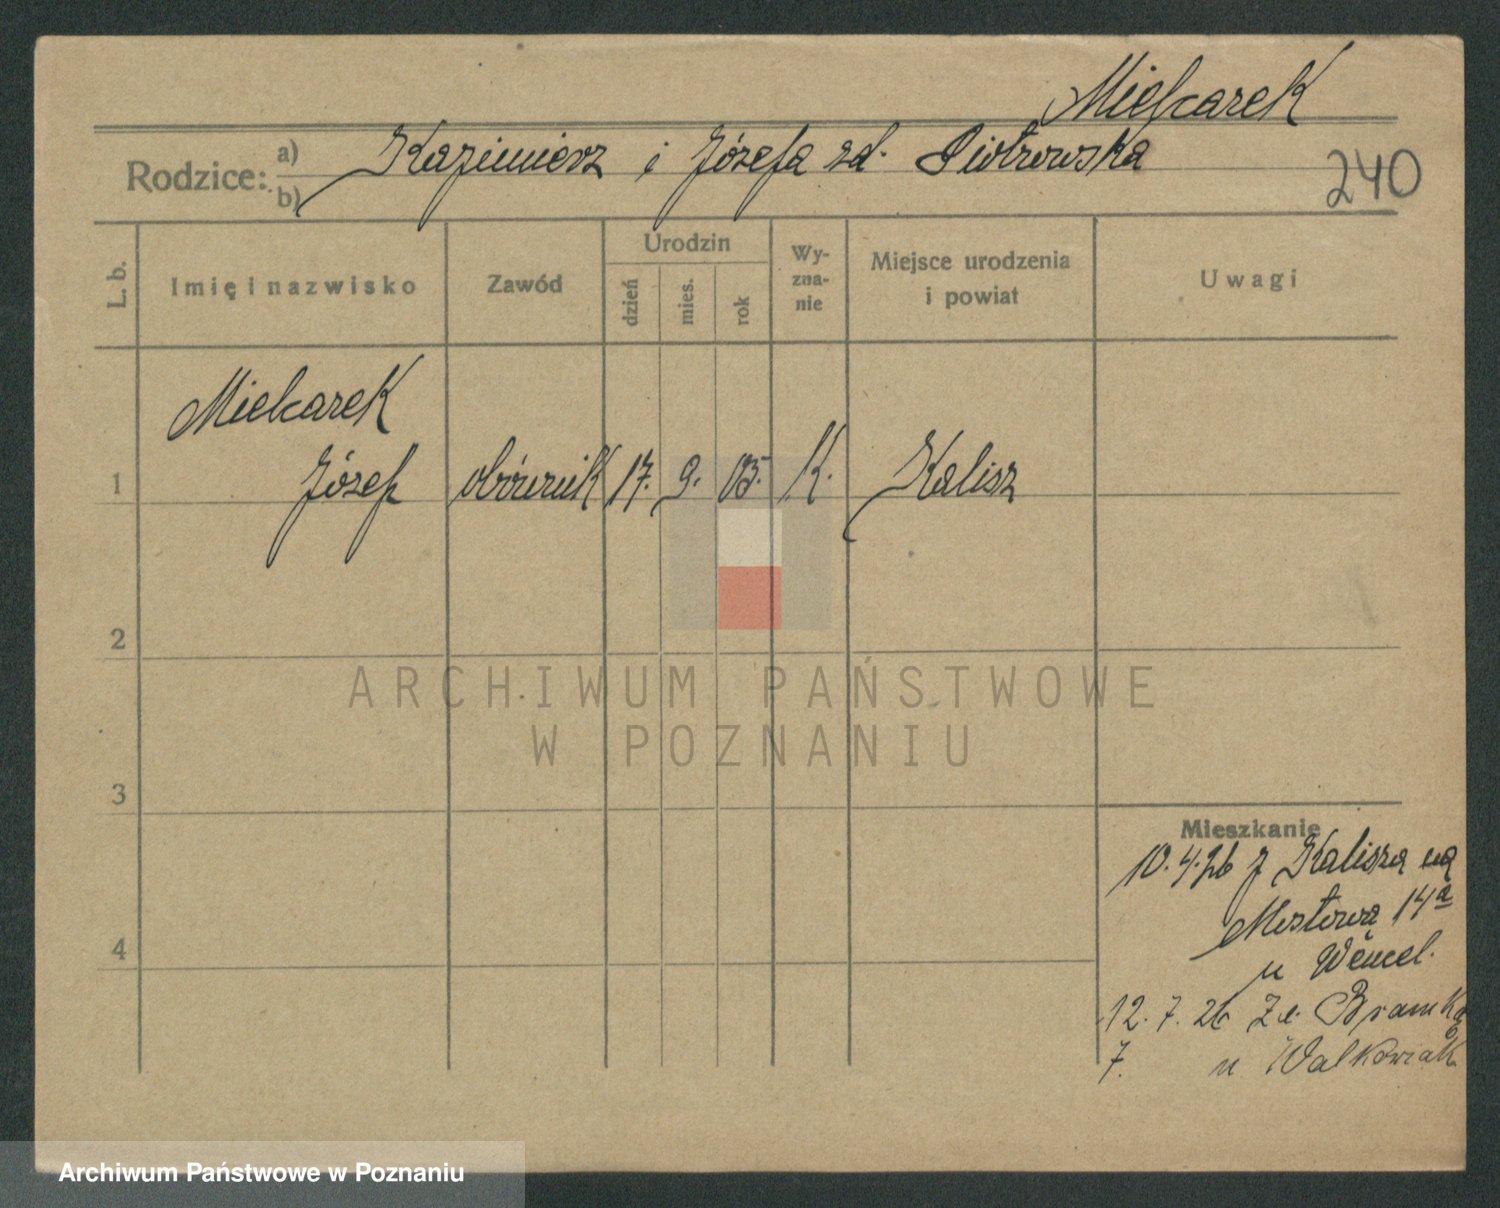 Mielcarek
Rodzice: a) b) Kazimierz i Józefa zd. Piotrowska
240
L. b.
Imię i nazwisko
Zawód
Urodzin
dzień
mies.
rok
Wy-
zna-
nie
Miejsce urodzenia
i powiat
Uwagi
Mielcarek
1 Józef 17. 9. 05. K. Kalisz
2
ARCHIWUM PAŃSTWOWE
W POZNANIU
3
Mieszkanie
10. 4. 26 z Kalisza na
Mostową 14a
4
u Wencel.
12. 7. 26 Zł. Bramka
7. u Walkowiak
Archiwum Państwowe w Poznaniu